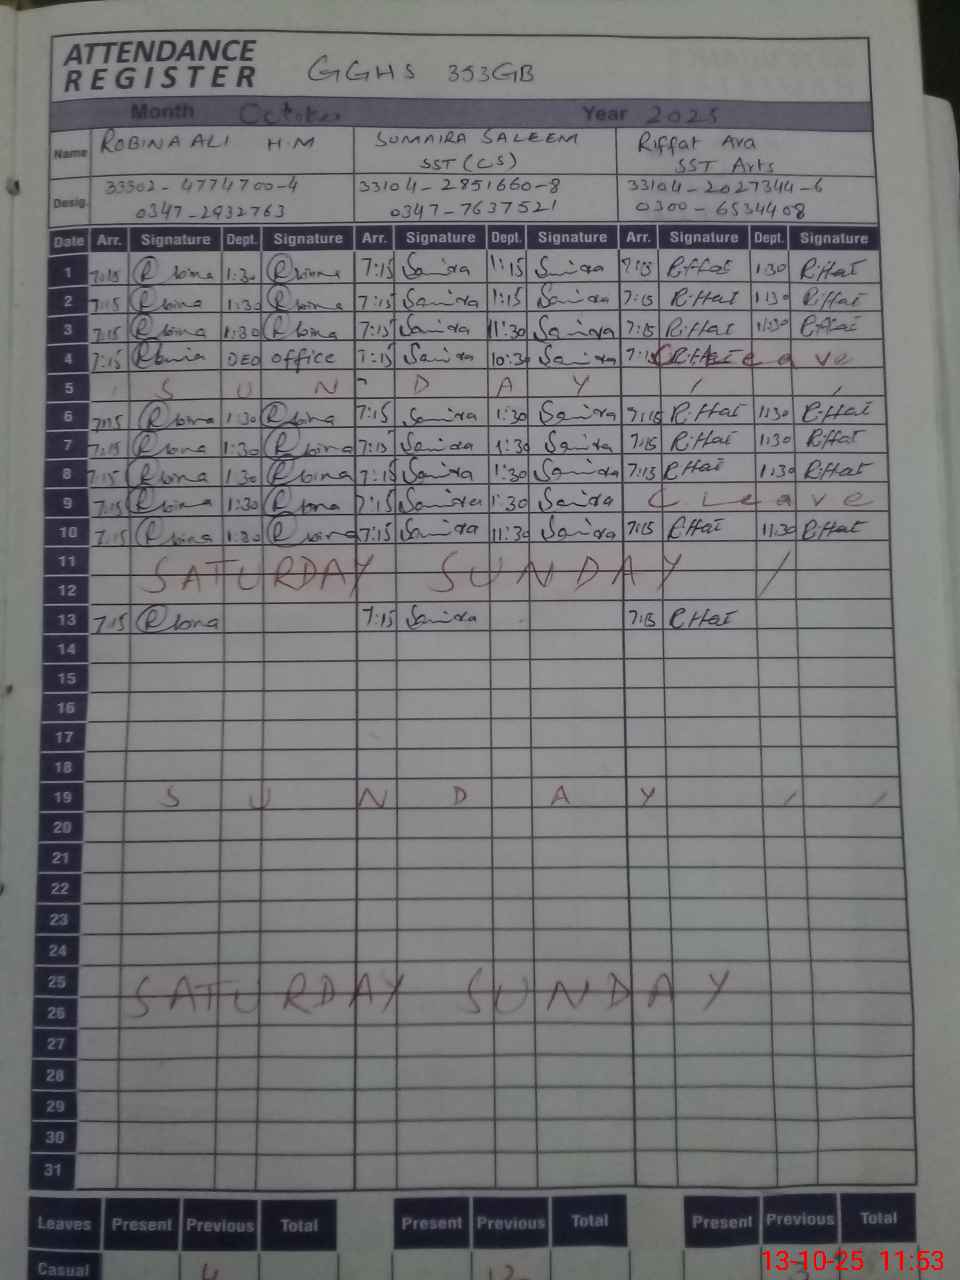 ATTENDANCE
REGISTER GGHS 353GB
Month October Year 2025
Name ROBINA ALI H.M SUMAIRA SALEEM Riffat Ara
SST (CS) SST Arts
Desig. 33302-4774700-4 33104-2851660-8 33104-2027344-6
0347-2932763 0347-7637521 0300-6534408
Date Arr. Signature Dept. Signature Arr. Signature Dept. Signature Arr. Signature Dept. Signature
1 7:15 1:30 7:15 1:15 7:15 Riffat 1:30 Riffat
2 7:15 1:30 7:15 1:15 7:15 Riffat 1:30 Riffat
3 7:15 1:30 7:15 11:30 7:15 Riffat 11:30 Riffat
4 7:15 DEO office 7:15 10:30 7:15 Riffat
5 S U N D A Y
6 7:15 1:30 7:15 1:30 7:15 Riffat 1:30 Riffat
7 7:15 1:30 7:15 1:30 7:15 Riffat 1:30 Riffat
8 7:15 1:30 7:15 1:30 7:15 Riffat 1:30 Riffat
9 7:15 1:30 7:15 1:30 C Leave
10 7:15 1:30 7:15 11:30 7:15 Riffat 11:30 Riffat
11
SATURDAY SUNDAY /
12
13 7:15 7:15 7:15 Riffat
14
15
16
17
18
19 S U N D A Y / /
20
21
22
23
24
25
SATURDAY SUNDAY
26
27
28
29
30
31
Leaves Present Previous Total Present Previous Total Present Previous Total
Casual 4 12
13-10-25 11:53